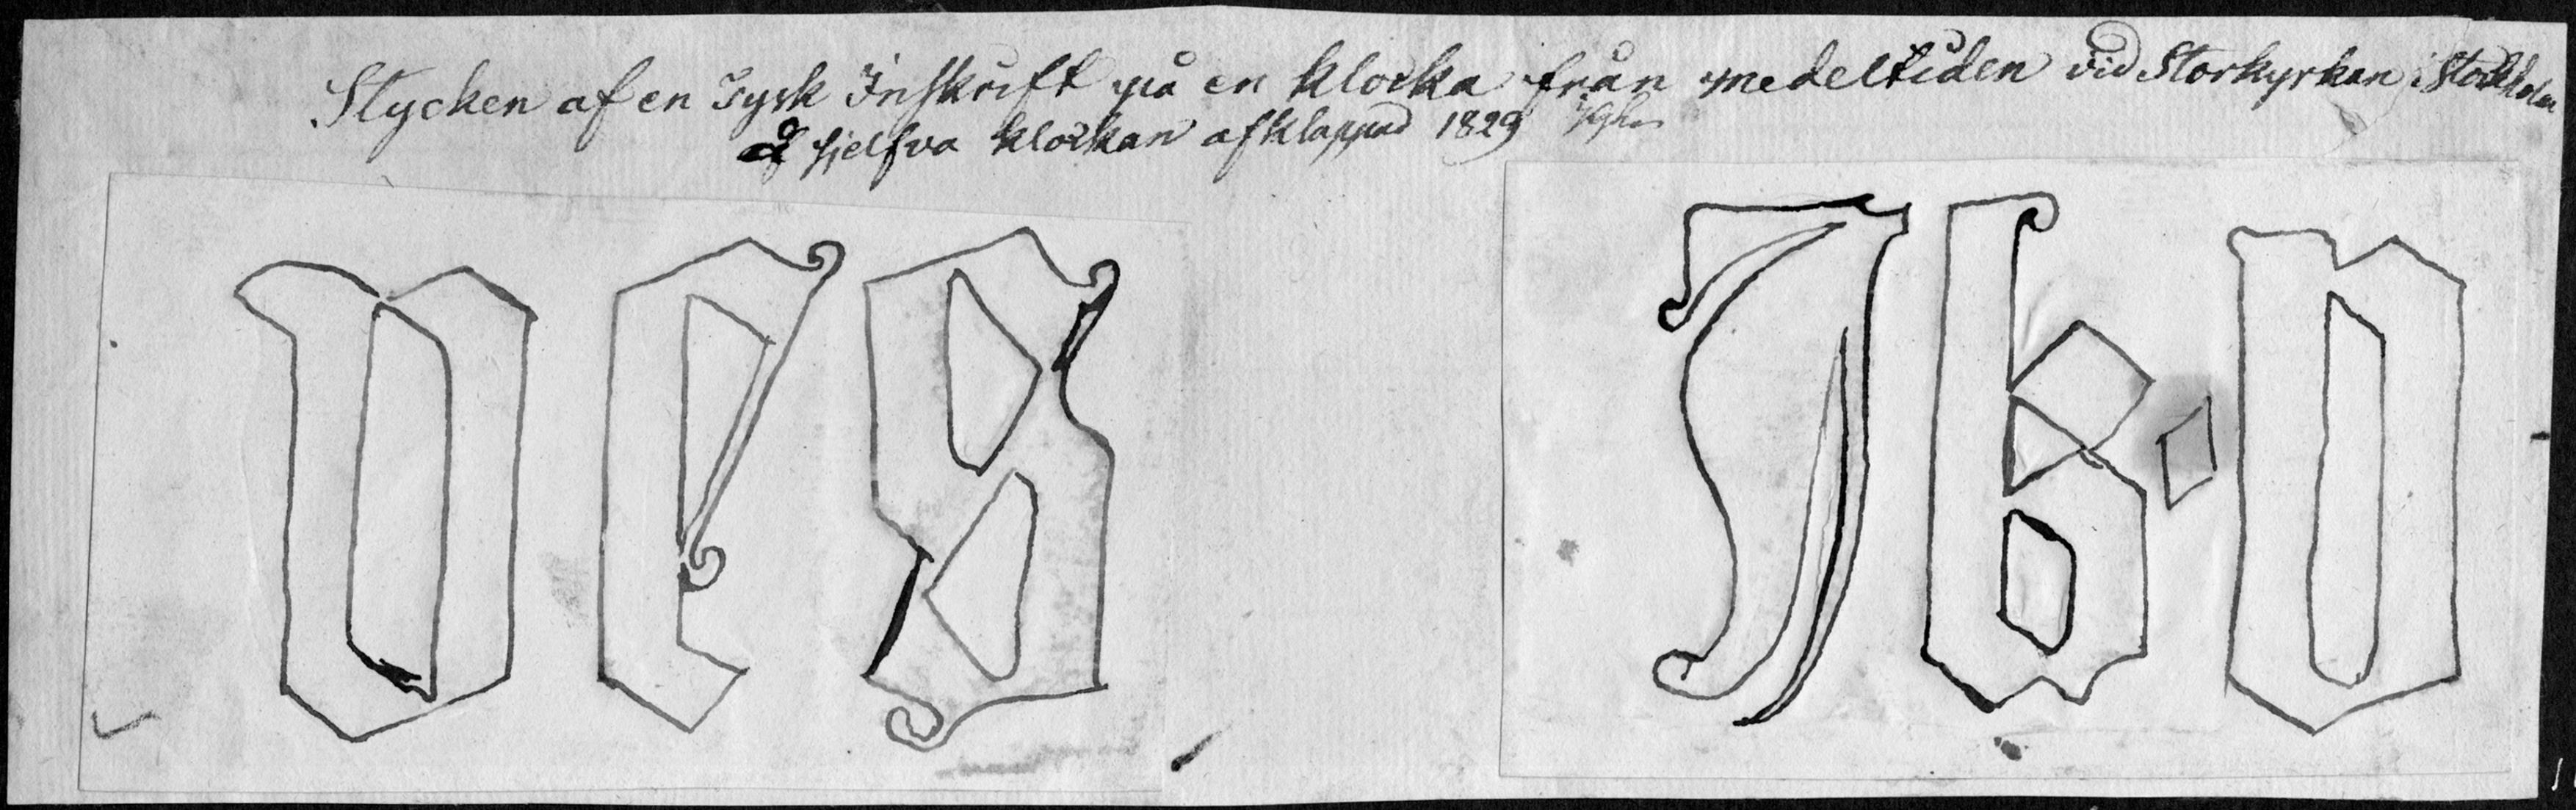 Stycken af en Tysk Inskrift på en klocka från medeltiden vid Storkyrkan i Stockholm
sjelfva klockan afklappad 1829
ves Jk